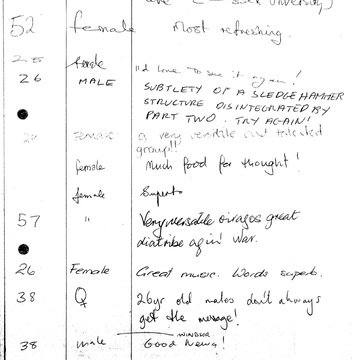 are C - Sussex University)
52 female Most refreshing.
female
26 MALE I'd love to see it again!
SUBTLETY OF A SLEDGEHAMMER
STRUCTURE DISINTEGRATED BY
PART TWO. TRY AGAIN!
Female a very versatile and talented
group!!!
female Much food for thought!
female Superb
57 " Very versatile & images great
diatribe agin' War.
26 Female Great music. Words superb.
38 ♀ 26yr old males don't always
get the message!
WINDSOR
38 male Good News!